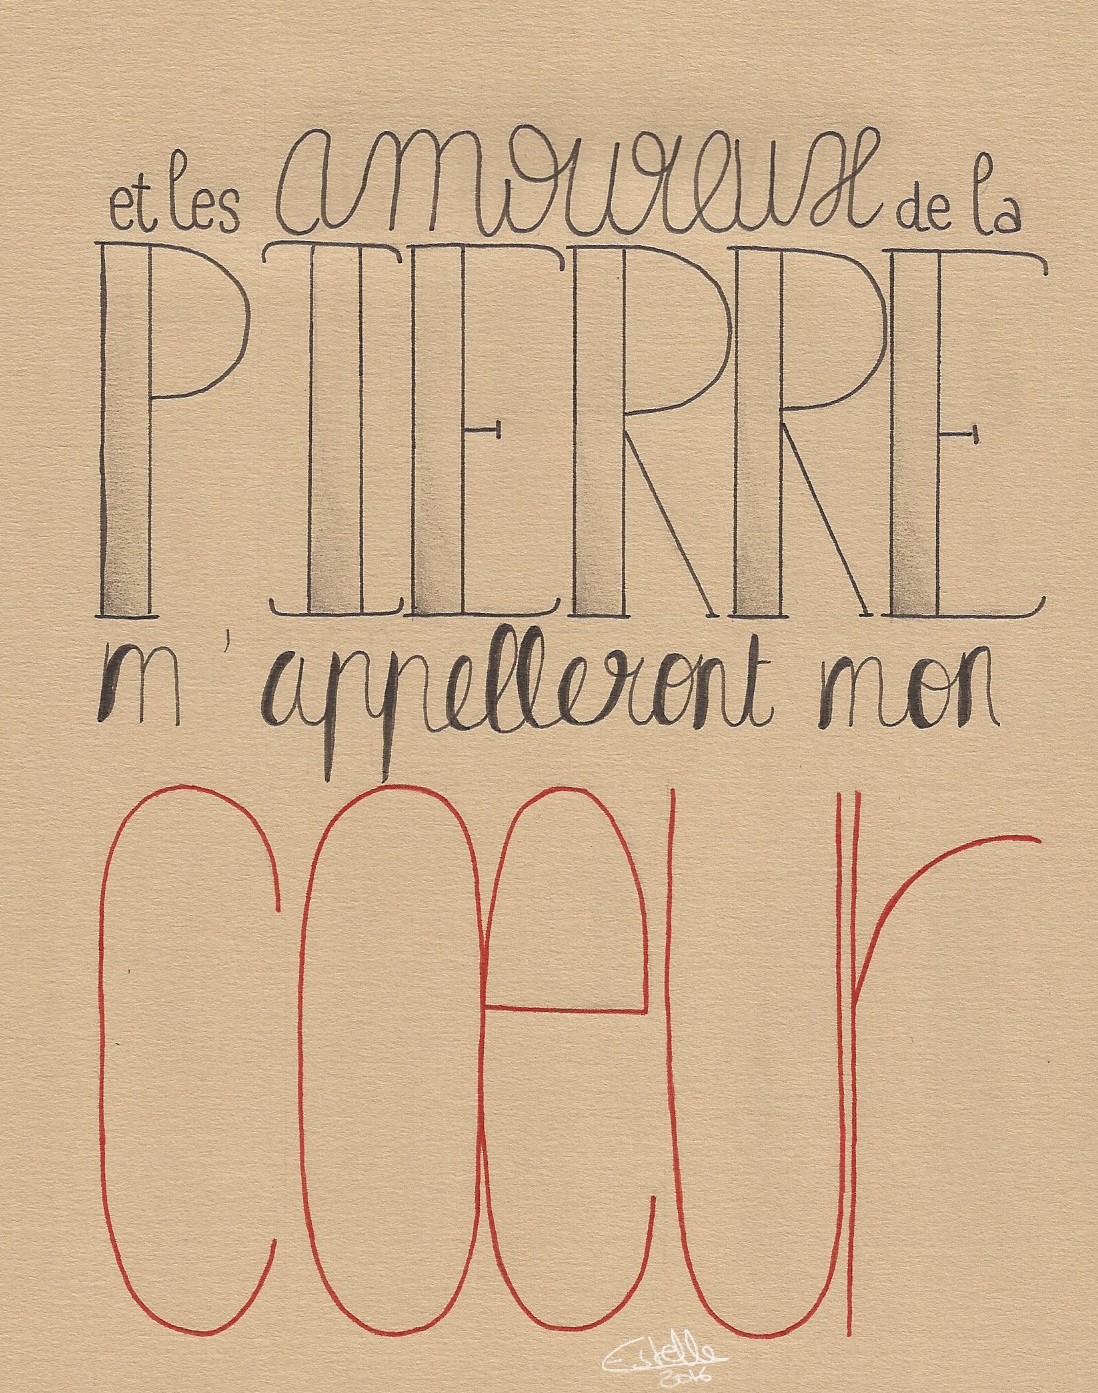 et les amoureux de la
PIERRE
m'appelleront mon
cœur
Estelle
2016